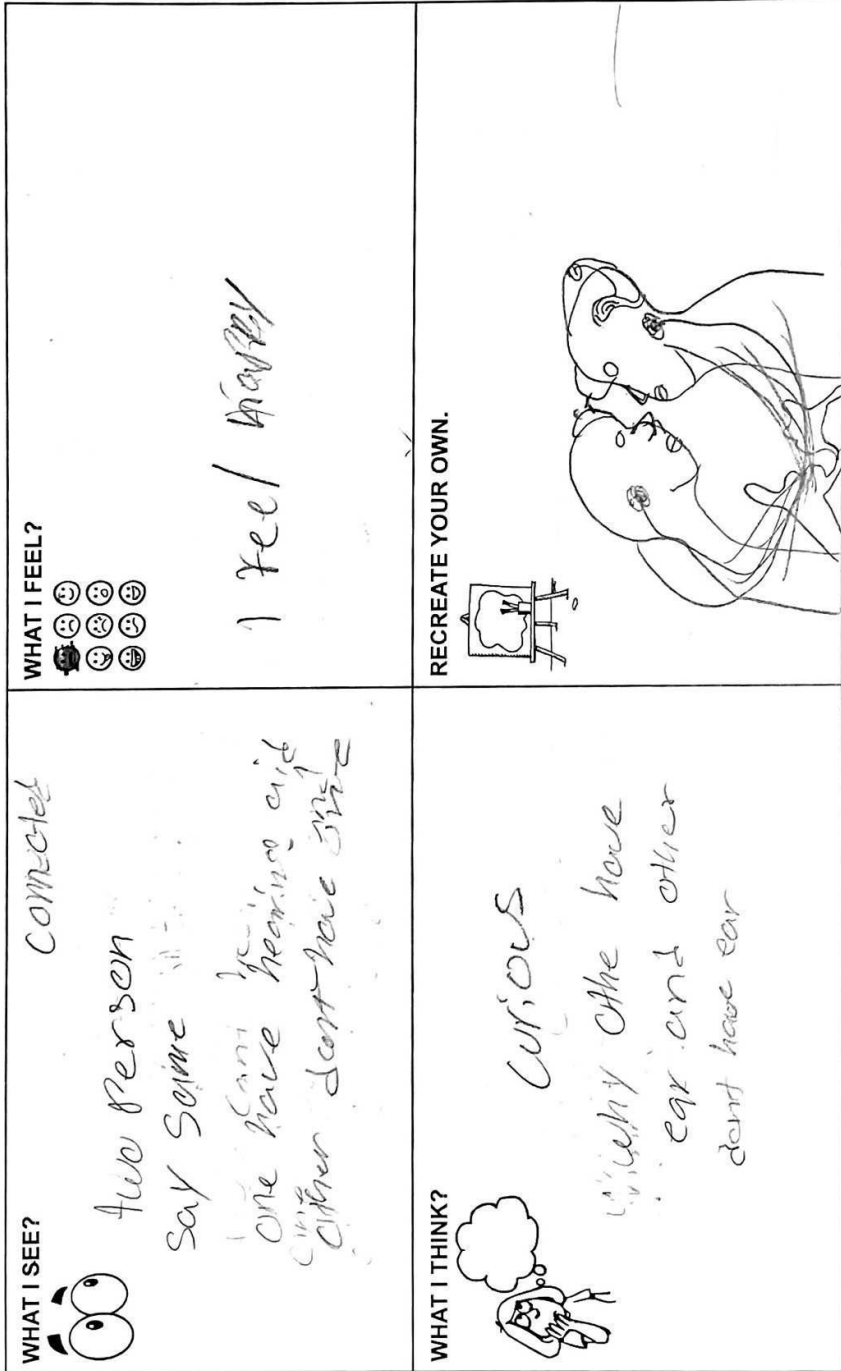 WHAT I SEE?
comected
two Person
say same
one have hearing aid
other dont have
WHAT I FEEL?
I feel happy
WHAT I THINK?
curious
why othe have
ear and other
dont have ear
RECREATE YOUR OWN.